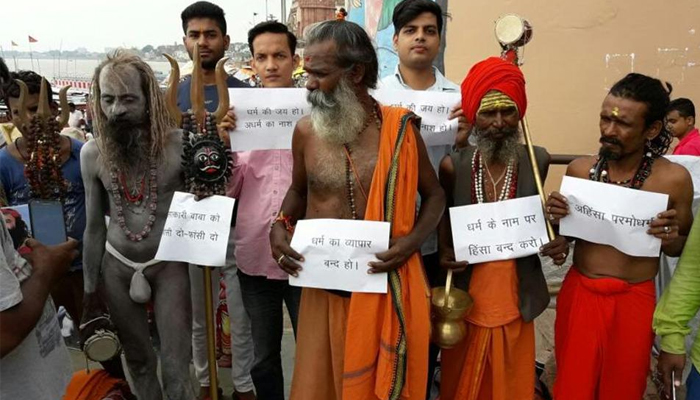 धर्म की जय हो।
अधर्म का नाश
धर्म की जय हो।
का नाश हो।
कारी बाबा को
दो-फांसी दो
धर्म का व्यापार
बन्द हो।
धर्म के नाम पर
हिंसा बन्द करो।
अहिंसा परमोधर्म